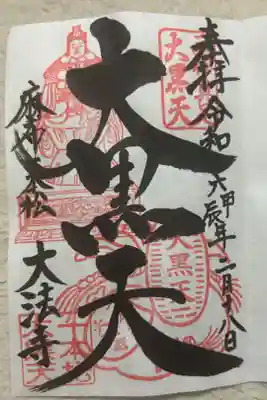 奉拝令和六甲辰年二月十八日
大黒天
大黒天
大黒天
麻布一本松
大法寺